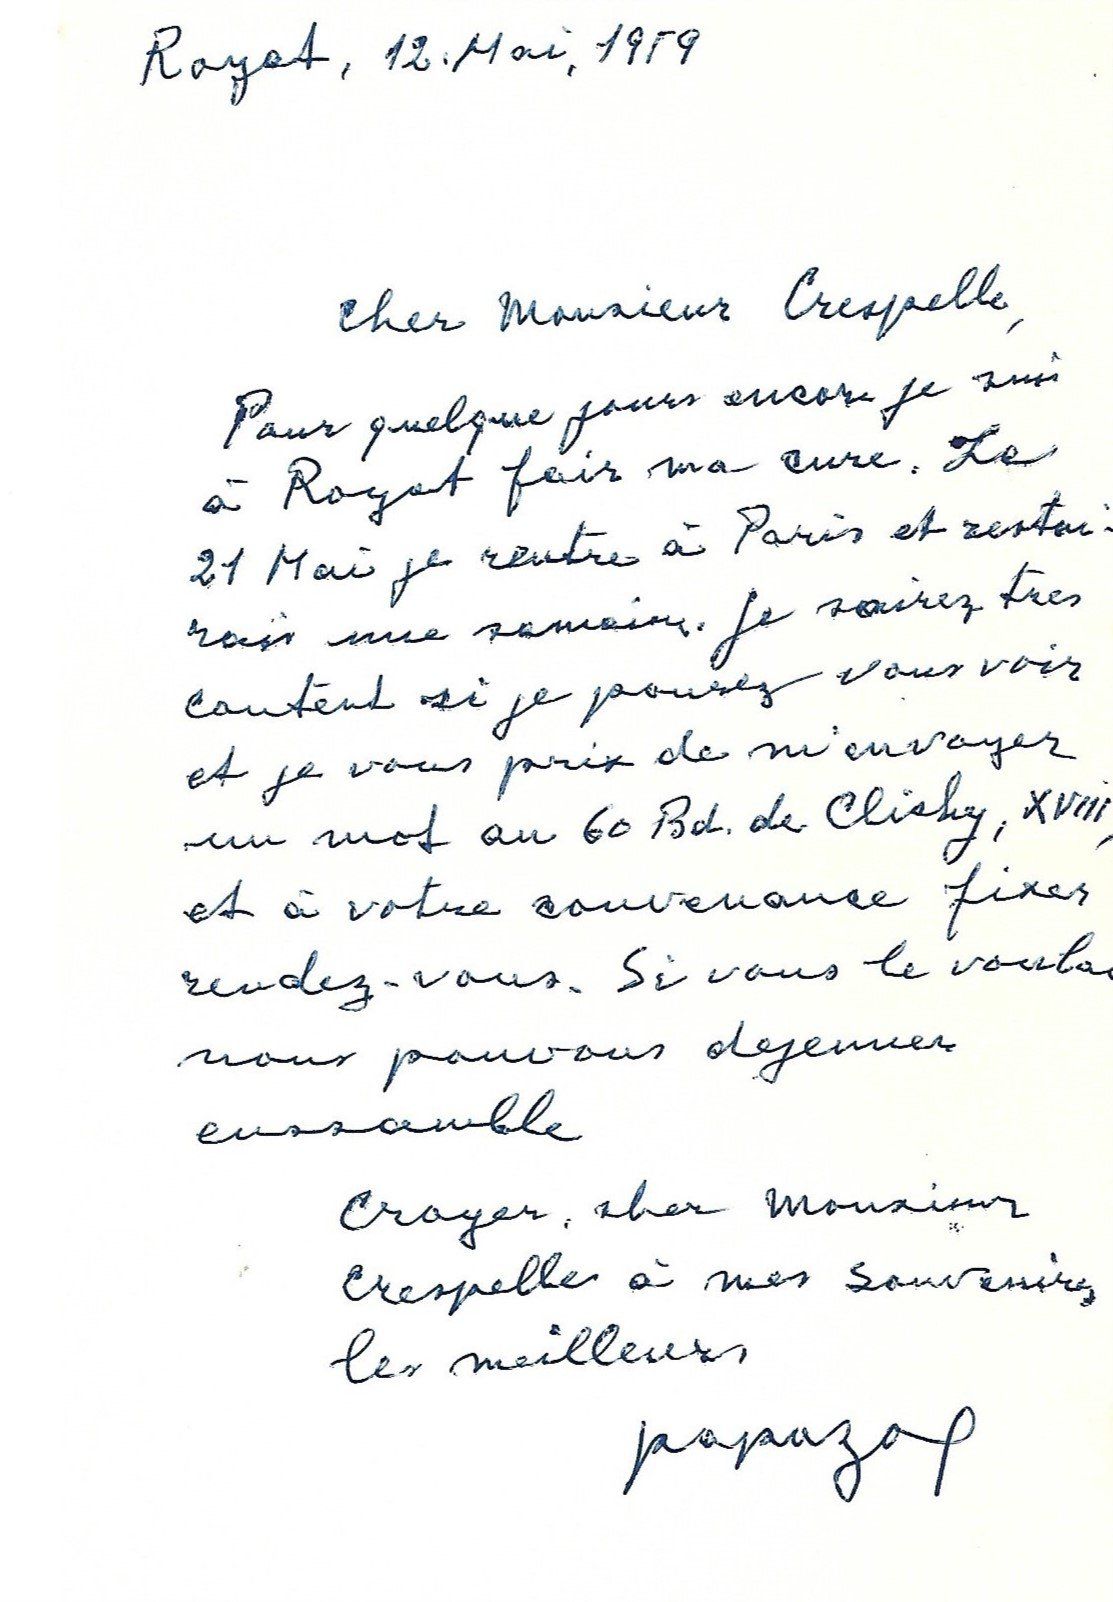 Royat, 12. Mai, 1959
Cher Monsieur Crespelle,
Pour quelque jours encore je suis
à Royat fair ma cure. Le
21 Mai je rentre à Paris et restai-
rais une semaine. Je sairez tres
content si je pourez vous voir
et je vous prix de m'envoyer
un mot au 60 Bd. de Clichy, XVIII,
et à votre convenance fixer
rendez-vous. Si vous le voula
nous pouvons dejeunner
enssamble
Croyer, cher Monsieur
Crespelle à mes souvenirs
les meilleurs
papazof